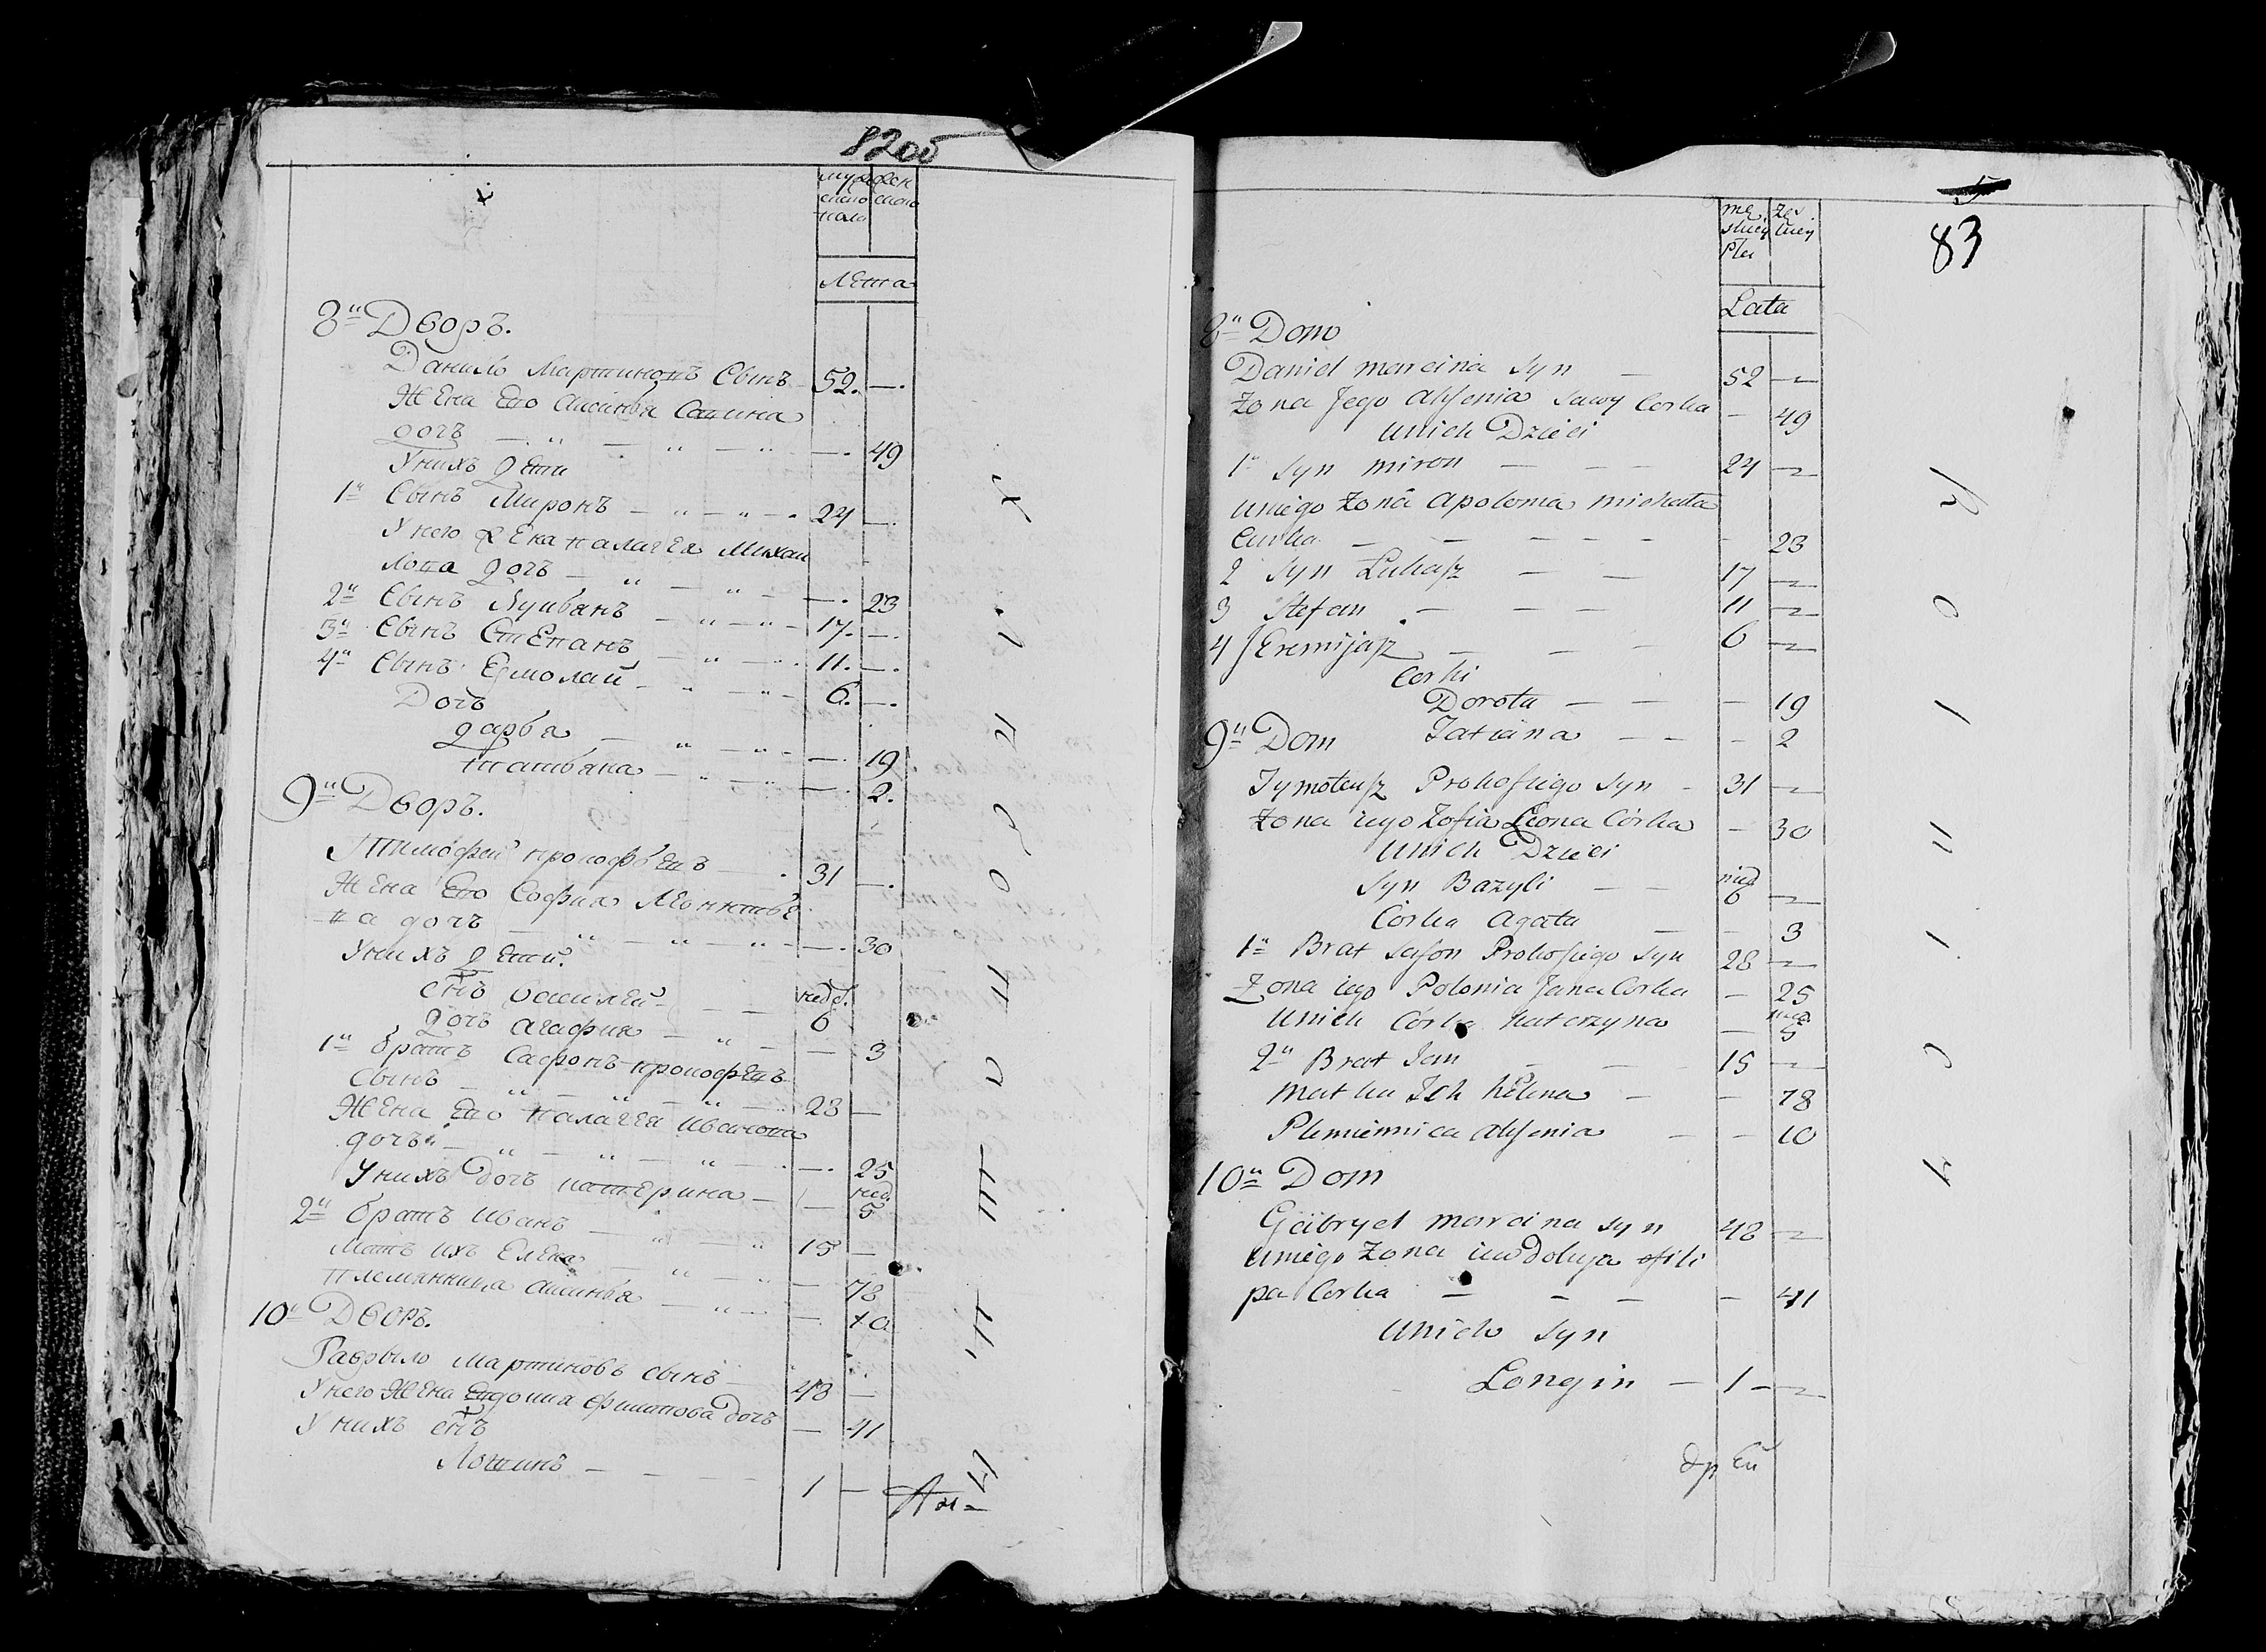 82об
мужеска
женска
пола
Лета
8й Дворъ.
Данило Мартиновъ Сынъ 52. —
Жена Его Аксинья Савина
дочь — 49
У нихъ дети
1й Сынъ Миронъ — 24 —
У него жена палагея Михаи
лова дочь — 23
2й Сынъ Лукьянъ — 17. —
3й Сынъ Степанъ — 11. —
4й Сынъ Ермолай — 6. —
Дочь
дарья — 19
татьяна — 2.
9й Дворъ.
Тимофей прокофьевъ — 31 —
Жена Его Софья Леонтье
ва дочь — 30
У нихъ дети.
снъ василей — нед. 6
дочь агафия — 3
1й братъ Сафонъ прокофьевъ
Сынъ — 28 —
Жена Его палагея Иванова
дочь — 25
У нихъ дочь катерина — нед. 5
2й братъ Иванъ — 15 —
Мать ихъ Елена — 78
племянница аксинья — 10
10й Дворъ.
Гаврыло мартиновъ сынъ 48 —
У него Жена Евдокия филипова дочь — 41
У нихъ снъ
Логинъ — 1 —
83
męskiey
płci
żeskiey
Lata
8й Dom
Daniel marcina syn — 52 —
Żona Jego Axenia Sawy Corka — 49
unich Dzieci
1й syn miron — 24 —
uniego Żona apolonia michała
Curka — 23
2 syn Lukasz — 17 —
3 Stefan — 11 —
4 Jeremijasz — 6 —
Corki
Dorota — 19
Tatiana — 2
9й Dom
Tymoteusz Prokofiego syn — 31 —
Żona iego Zofia Leona Córka — 30
unich Dzieci
syn Bazyli — nied. 6 —
Córka Agata — 3
1й Brat Safon Prokofiego syn 28 —
Żona iego Polonia Jana Corka — 25
unich Córka katarzyna — nied. 5
2й Brat Jan — 15 —
matka Ich helena — 78
Plemiennica Axenia — 10
10й Dom
Gabryel marcina syn 48 —
uniego Żona iewdokyja fili
pa Corka — 41
unich syn
Longin — 1 —